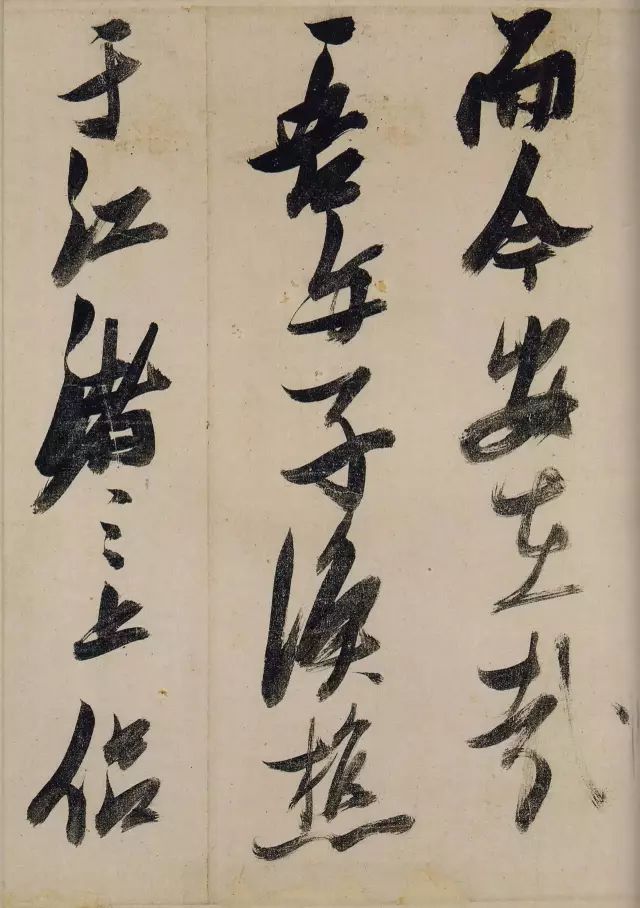 而今安在哉
吾与子漁樵
于江渚之上侣